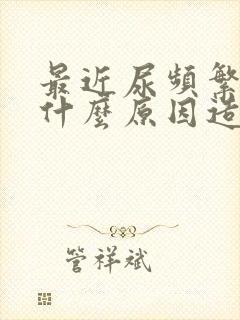 最近尿頻繁
什麼原因造
管祥斌